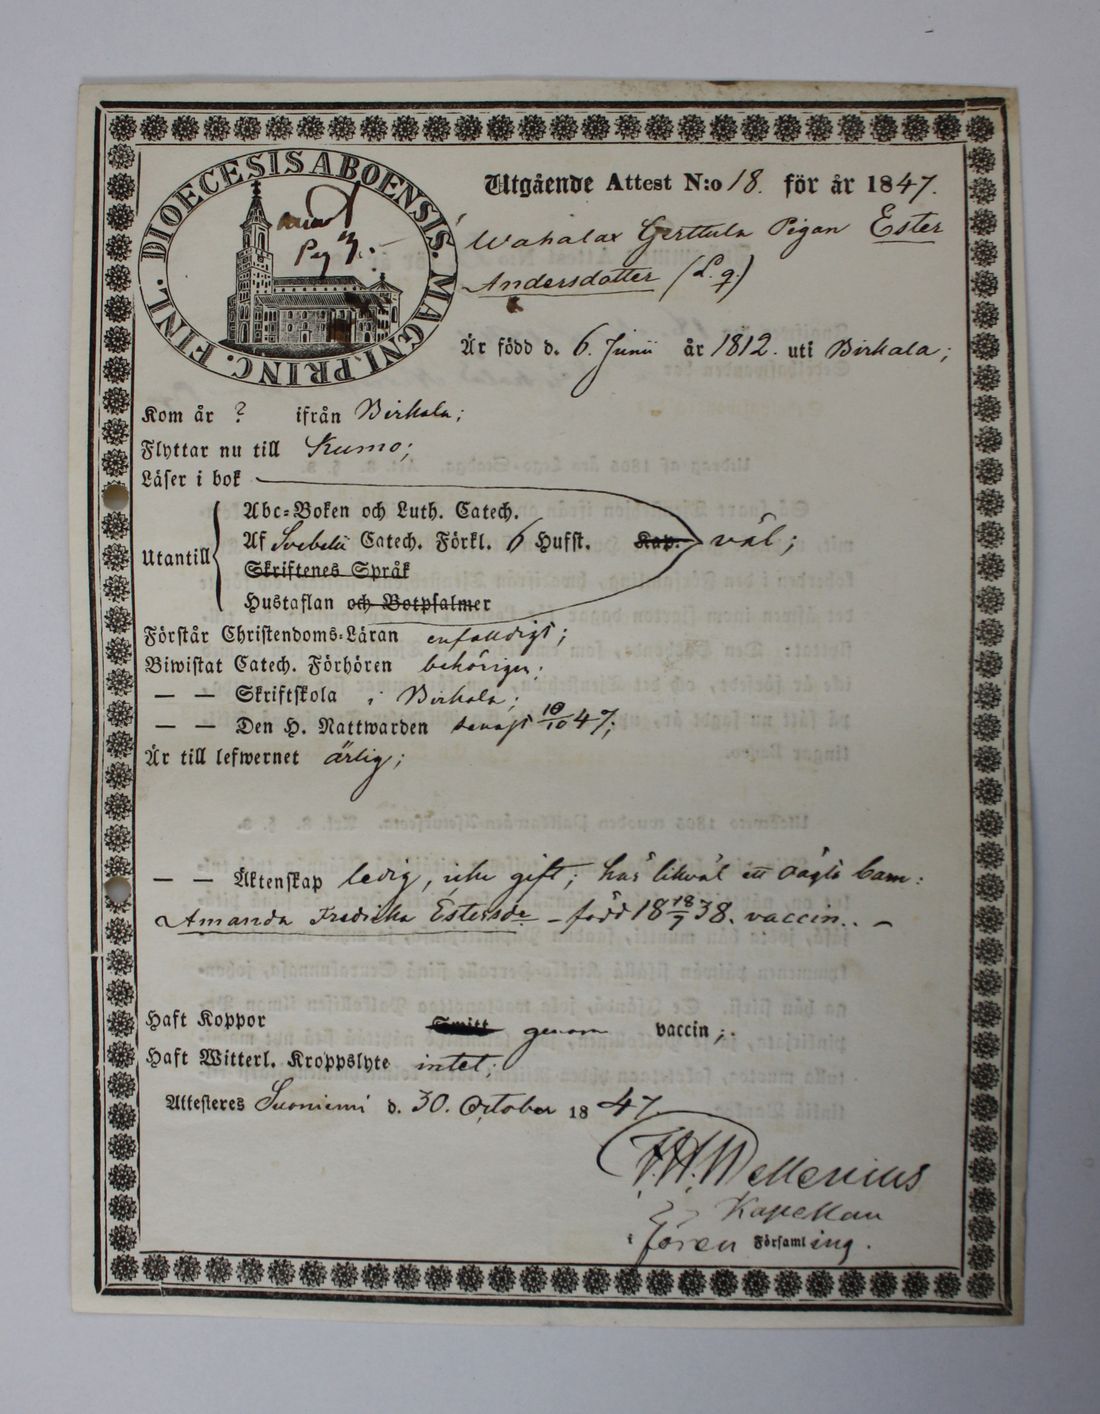 DIOECESIS ABOENSIS. MAGNI. PRINC. FINL.
Utgående Attest N:o 18. för år 1847.
Wahalax Gerttula Pigan Ester
Andersdotter (L. q.)
Är född d. 6. Junii år 1812. uti Birkala;
Kom år ? ifrån Birkala;
Flyttar nu till Kumo;
Läser i bok
Utantill
Abc-Boken och Luth. Catech.
Af Svebelii Catech. Förkl. 6 Hufst. Kap. väl;
Skriftenes Språk
Hustaflan och Botpsalmer
Förstår Christendoms-Läran enfalldigt;
Biwistat Catech. Förhören behörigen;
— — Skriftskola i Birkala;
— — Den H. Nattwarden senast 10/10 47;
Är till lefwernet ärlig;
— — Äktenskap ledig, icke gift; har likväl ett oägta barn:
Amanda Fredrika Estersdr – född 18 18/7 38. vaccin.. –
Haft Koppor genom vaccin;
Haft Witterl. Kroppslyte intet;
Attesteres Suoniemi d. 30. October 1847.
Kapellan
i Församling.